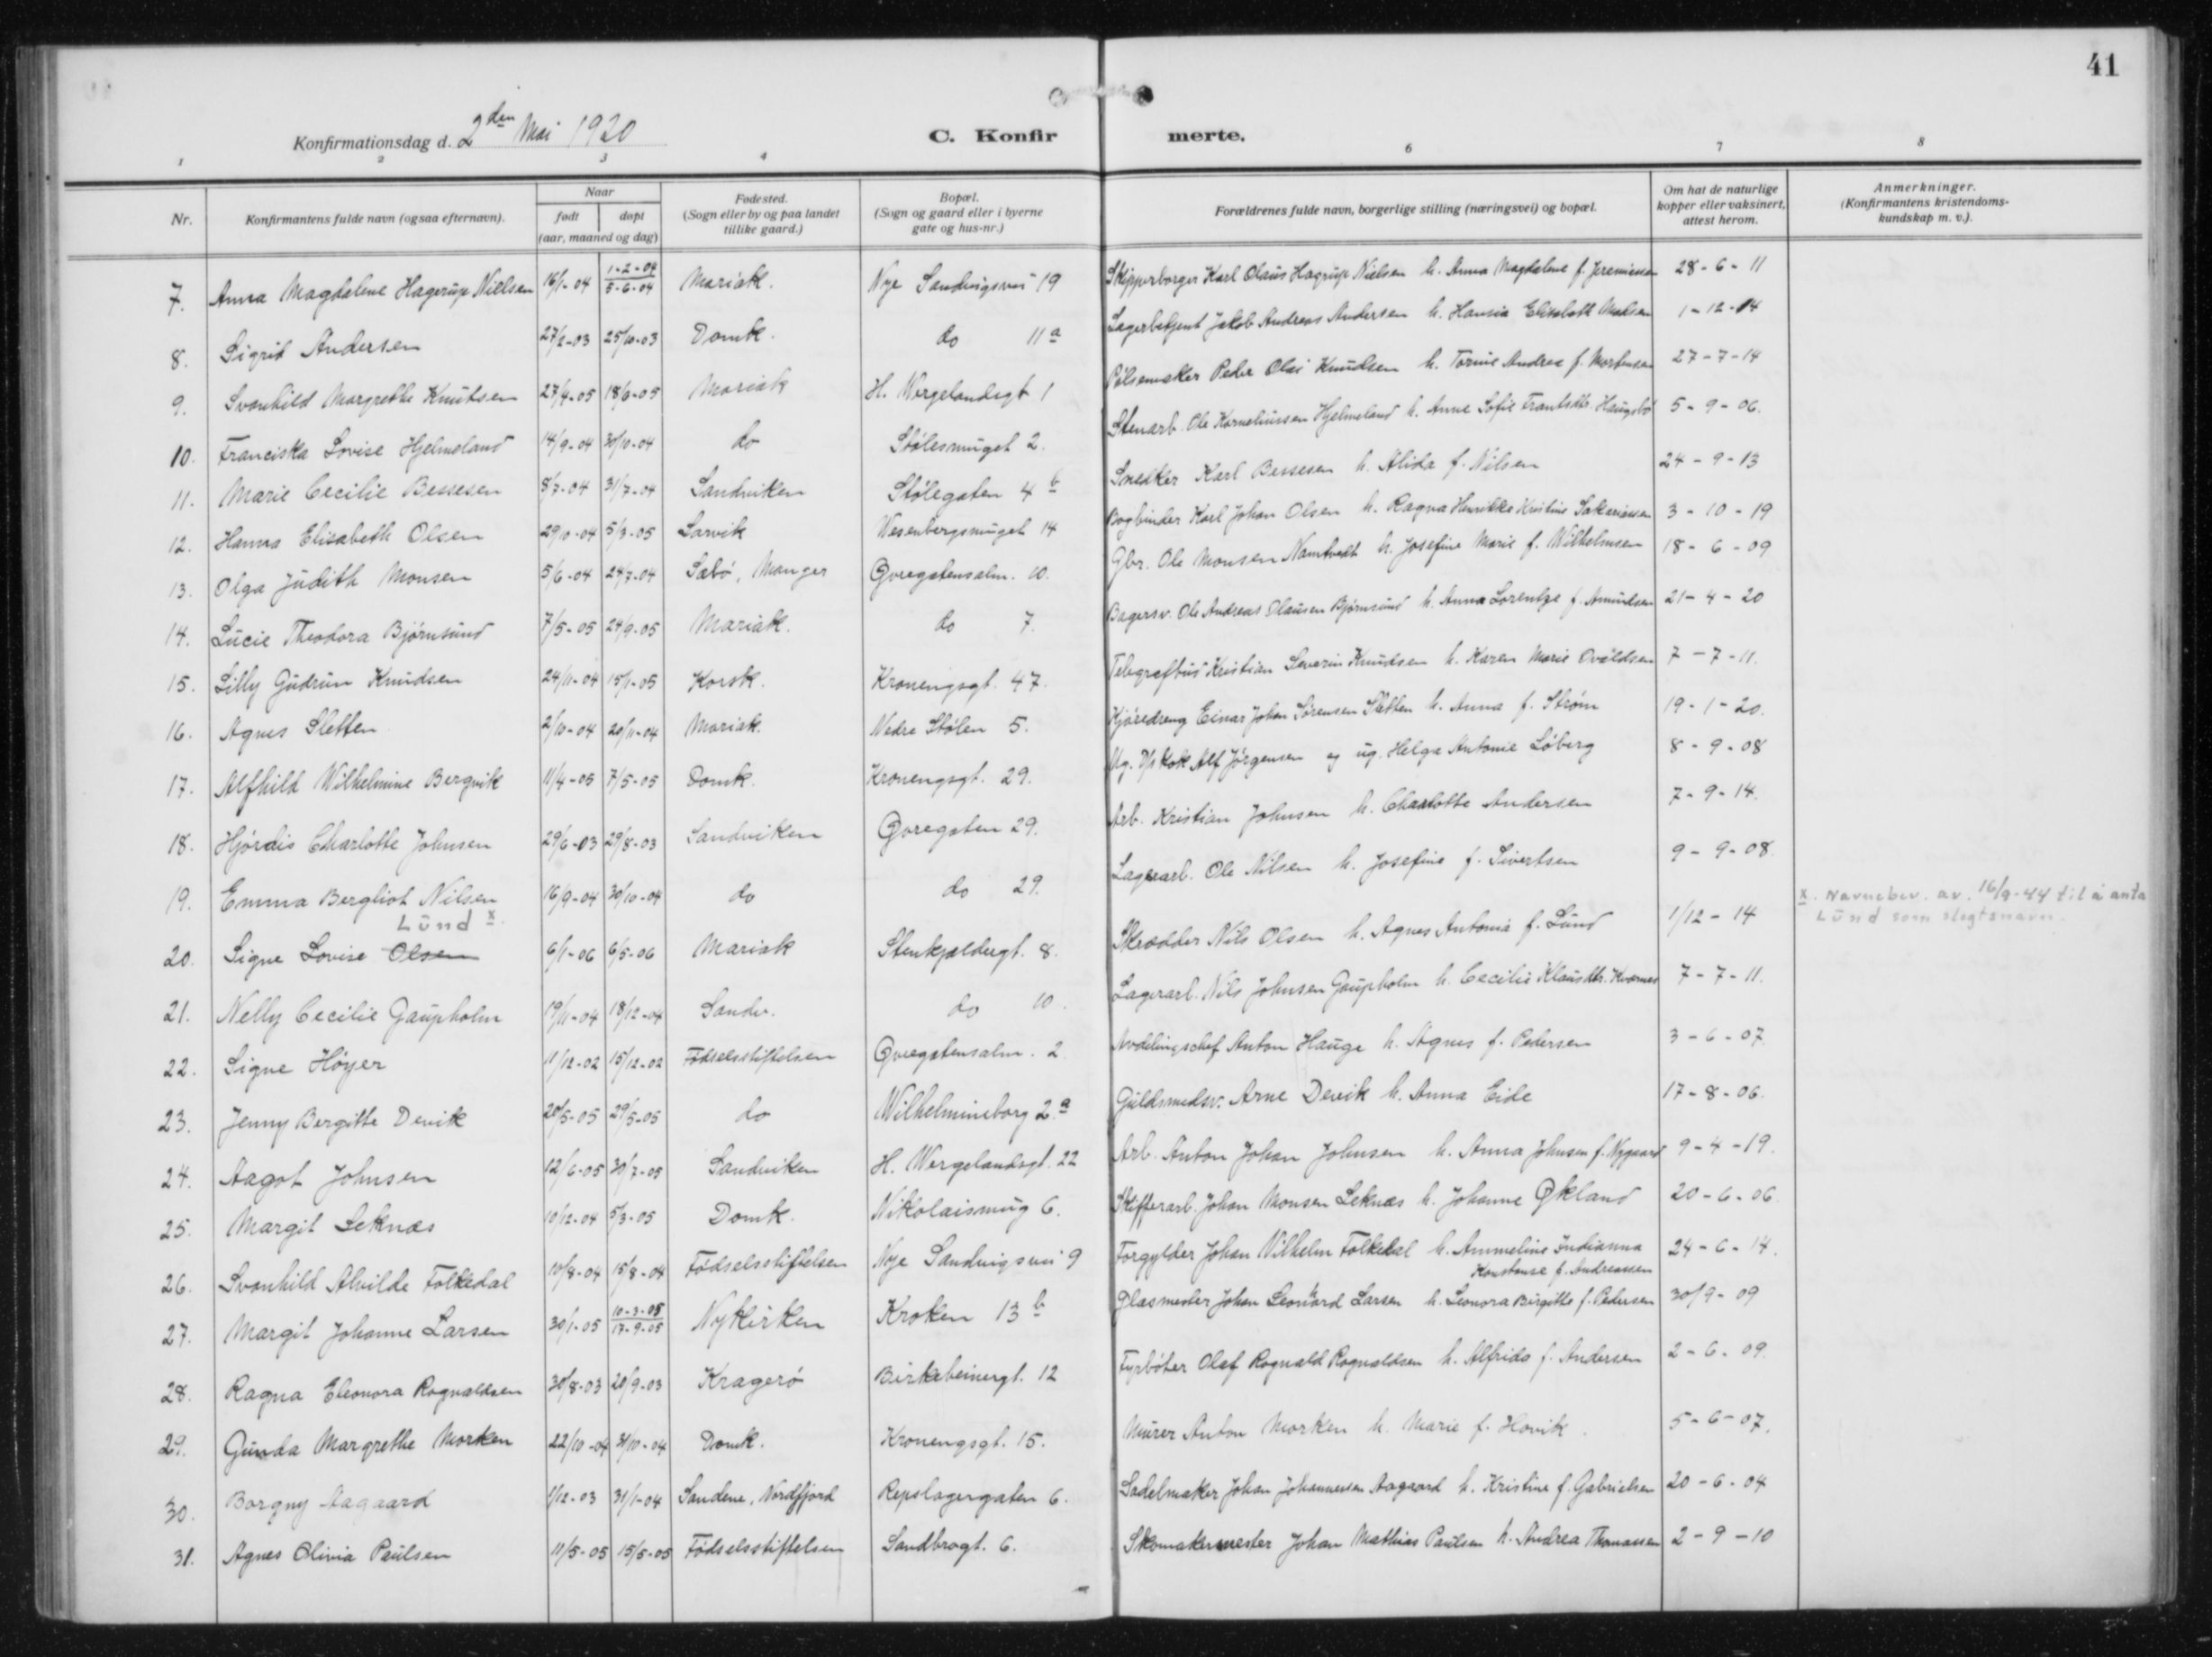 41
Konfirmationsdag d. 2den Mai 1920
C. Konfirmerte.
1 2 3 4 6 7 8
Nr. Konfirmantens fulde navn (ogsaa efternavn). Naar født døpt (aar, maaned og dag) Fødested. (Sogn eller by og paa landet tillike gaard.) Bopæl. (Sogn og gaard eller i byerne gate og hus-nr.) Forældrenes fulde navn, borgerlige stilling (næringsvei) og bopæl. Om hat de naturlige kopper eller vaksinert, attest herom. Anmerkninger. (Konfirmantens kristendomskundskap m. v.).
7. Anna Magdalene Hagerup Nielsen 16/1-04 1-2-04 5-6-04 Mariak. Nye Sandvigsvei 19 Skipperborger Karl Olaus Hagrup Nielsen h. Anna Magdalene f. Jeremiassen 28-6-11
8. Sigrid Andersen 27/2-03 25/10-03 Domk. do 11a Lagerbetjent Jakob Andreas Andersen h. Hansia Elisabeth Madsen 1-12-14
9. Svanhild Margrethe Knutsen 27/4-05 18/6-05 Mariak H. Wergelandsgt 1 Pölsemaker Peder Olai Knudsen h. Torine Andrea f. Mortensen 27-7-14
10. Franciska Lovise Hjelmeland 14/9-04 30/10-04 do Stölesmuget 2. Stenarb. Ole Korneliussen Hjelmeland h. Anne Sofie Frantsdtr. Haugsbø 5-9-06.
11. Marie Cecilie Bessesen 8/7-04 31/7-04 Sandviken Stölegaten 4b Snedker Karl Bessesen h. Alida f. Nilsen 24-9-13
12. Hanna Elisabeth Olsen 29/10-04 5/3-05 Larvik Wesenbergsmuget 14 Bogbinder Karl Johan Olsen h. Ragna Henrikke Kristine Sakariassen 3-10-19
13. Olga Judith Monsen 5/6-04 24/7-04 Sæbö, Manger Øvregatensalm. 10. Gbr. Ole Monsen Namtvedt h. Josefine Marie f. Wilhelmsen 18-6-09
14. Lucie Theodora Bjørnsund 7/5-05 24/9-05 Mariak. do 7. Bagersv. Ole Andreas Olausen Bjørnsund h. Anna Lorentze f. Amundsen 21-4-20
15. Lilly Gudrun Knudsen 24/11-04 15/1-05 Korsk. Kronengsgt. 47. Telegrafbud Kristian Severin Knudsen h. Karen Marie Ovaldsen 7-7-11.
16. Agnes Sletten 2/10-04 20/11-04 Mariak. Nedre Stölen 5. Kjöredreng Einar Johan Sørensen Sletten h. Anna f. Strøm 19-1-20.
17. Alfhild Wilhelmine Bergvik 11/4-05 7/5-05 Domk. Kronengsgt. 29. Ug. D/s Kok Alf Jörgensen og ug. Helga Antonie Löberg 8-9-08
18. Hjördis Charlotte Johnsen 29/6-03 29/8-03 Sandviken Øvregaten 29. Arb. Kristian Johnsen h. Charlotte Andersen 7-9-14.
19. Emma Bergliot Nilsen 16/9-04 30/10-04 do do 29. Lagerarb. Ole Nilsen h. Josefine f. Sivertsen 9-9-08
Lund x.
20. Signe Lovise Olsen 6/1-06 6/5-06 Mariak Stenkjældergt. 8. Skrædder Nils Olsen h. Agnes Antonia f. Lund 1/12-14 x. Navnebev. av. 16/9-44 til å anta Lund som slegtsnavn.
21. Nelly Cecilie Gaupholm 19/11-04 18/12-04 Sandv. do 10. Lagerarb. Nils Johnsen Gaupholm h. Cecilie Klausdtr. Kvarnes 7-7-11.
22. Signe Höyer 11/12-02 15/12-02 Födselsstiftelsen Øvregatensalm. 2. Avdelingschef Anton Hauge h. Agnes f. Pedersen 3-6-07.
23. Jenny Bergitte Devik 20/5-05 29/5-05 do Wilhelmineborg 2a Guldsmedsv. Arne Devik h. Anna Eide 17-8-06.
24. Aagot Johnsen 12/6-05 30/7-05 Sandviken H. Wergelandsgt. 22 Arb. Anton Johan Johnsen h. Anna Johnsen f. Nygaard 9-4-19.
25. Margit Leknæs 10/12-04 5/3-05 Domk. Nikolaismug 6. Skifferarb. Johan Monsen Leknæs h. Johanne Økland 20-6-06.
26. Svanhild Alvilde Folkedal 10/8-04 15/8-04 Födselsstiftelsen Nye Sandvigsvei 9 Forgylder Johan Vilhelm Folkedal h. Ammeline Indianna Konstanse f. Andreassen 24-6-14.
27. Margit Johanne Larsen 30/1-05 10-3-05 17-9-05 Nykirken Kroken 13b Glasmester Johan Leonhard Larsen h. Leonora Birgitte f. Pedersen 30/9-09
28. Ragna Eleonora Rognaldsen 30/8-03 20/9-03 Kragerö Birkebeinergt. 12 Fyrböter Olaf Rognald Rognaldsen h. Alfrida f. Andersen 2-6-09.
29. Gunda Margrethe Morken 22/10-04 31/10-04 Domk. Kronengsgt. 15. Murer Anton Morken h. Marie f. Hovik. 5-6-07.
30. Borgny Aagaard 1/12-03 31/1-04 Sandene, Nordfjord Repslagergaten 6. Sadelmaker Johan Johannesen Aagaard h. Kristine f. Gabrielsen 20-6-04
31. Agnes Olivia Paulsen 11/5-05 15/5-05 Födselsstiftelsen Sandbrogt. 6. Skomakermester Johan Mathias Paulsen h. Andrea Thomassen 2-9-10